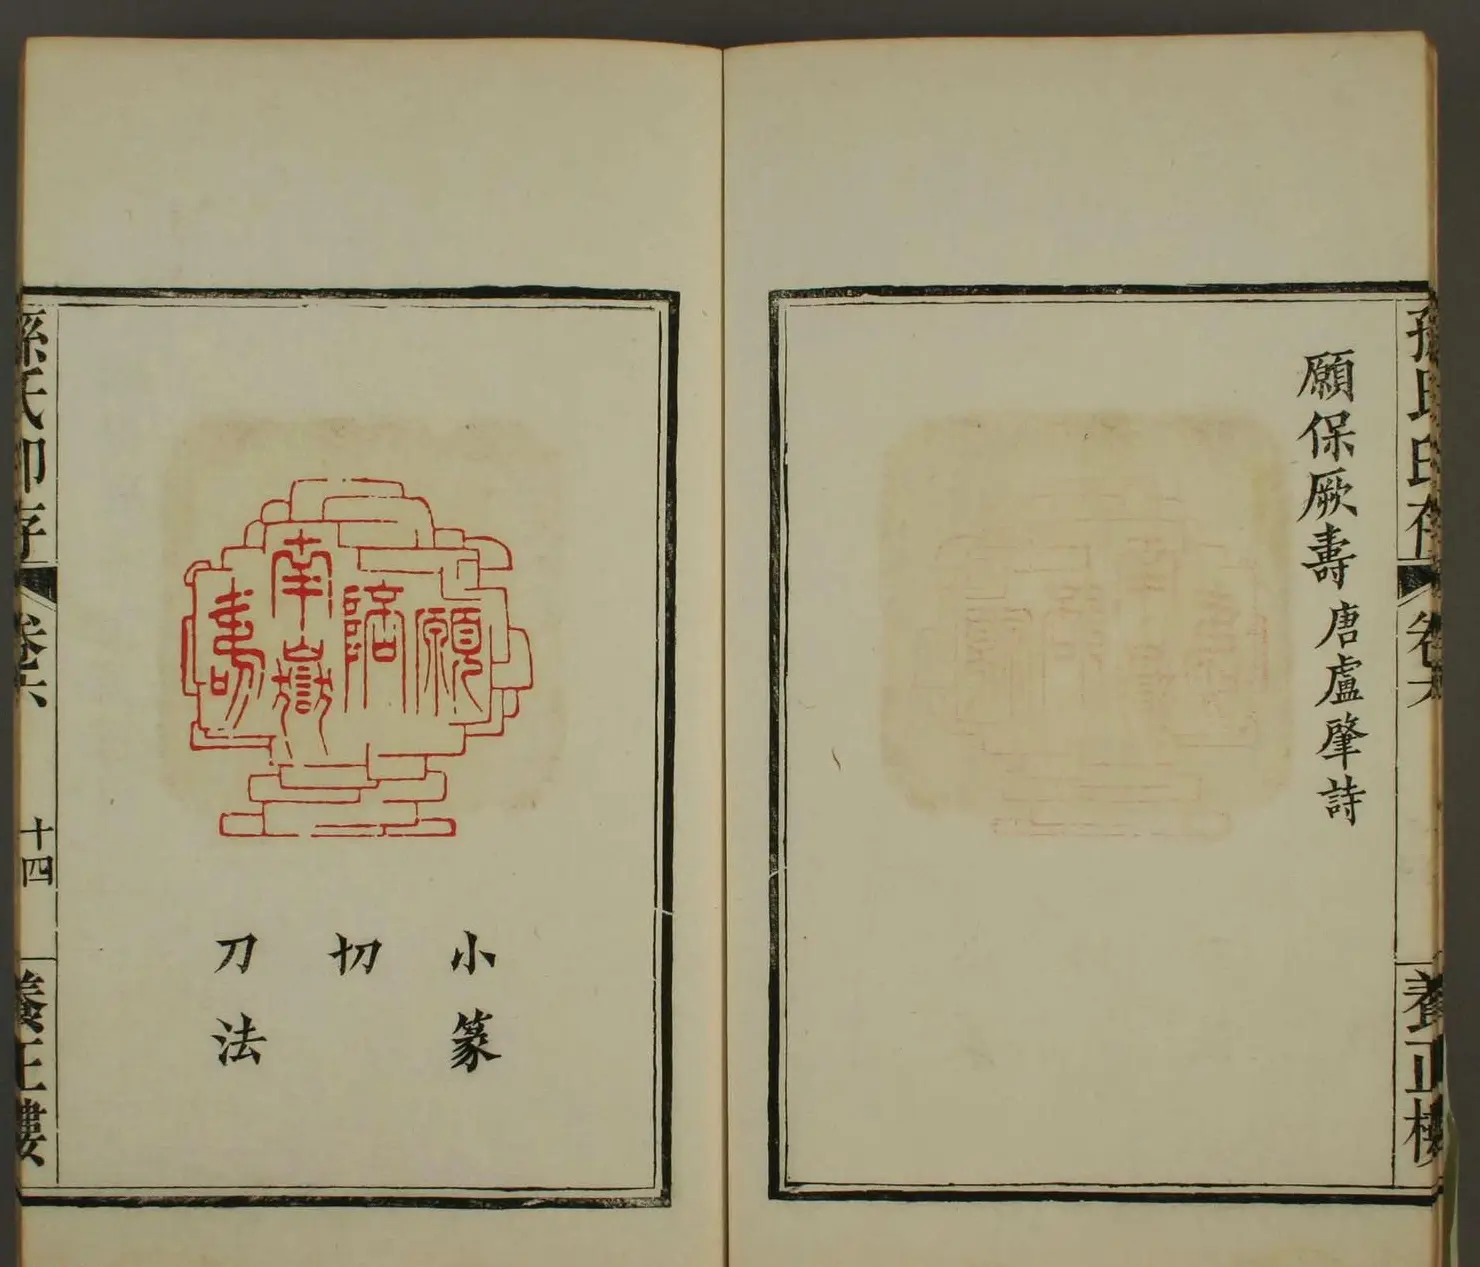 孫氏印存
卷六
養正樓
願保厥壽 唐盧肇詩
願陪南嶽壽
小篆
切
刀法
孫氏印存
卷六
十四
養正樓